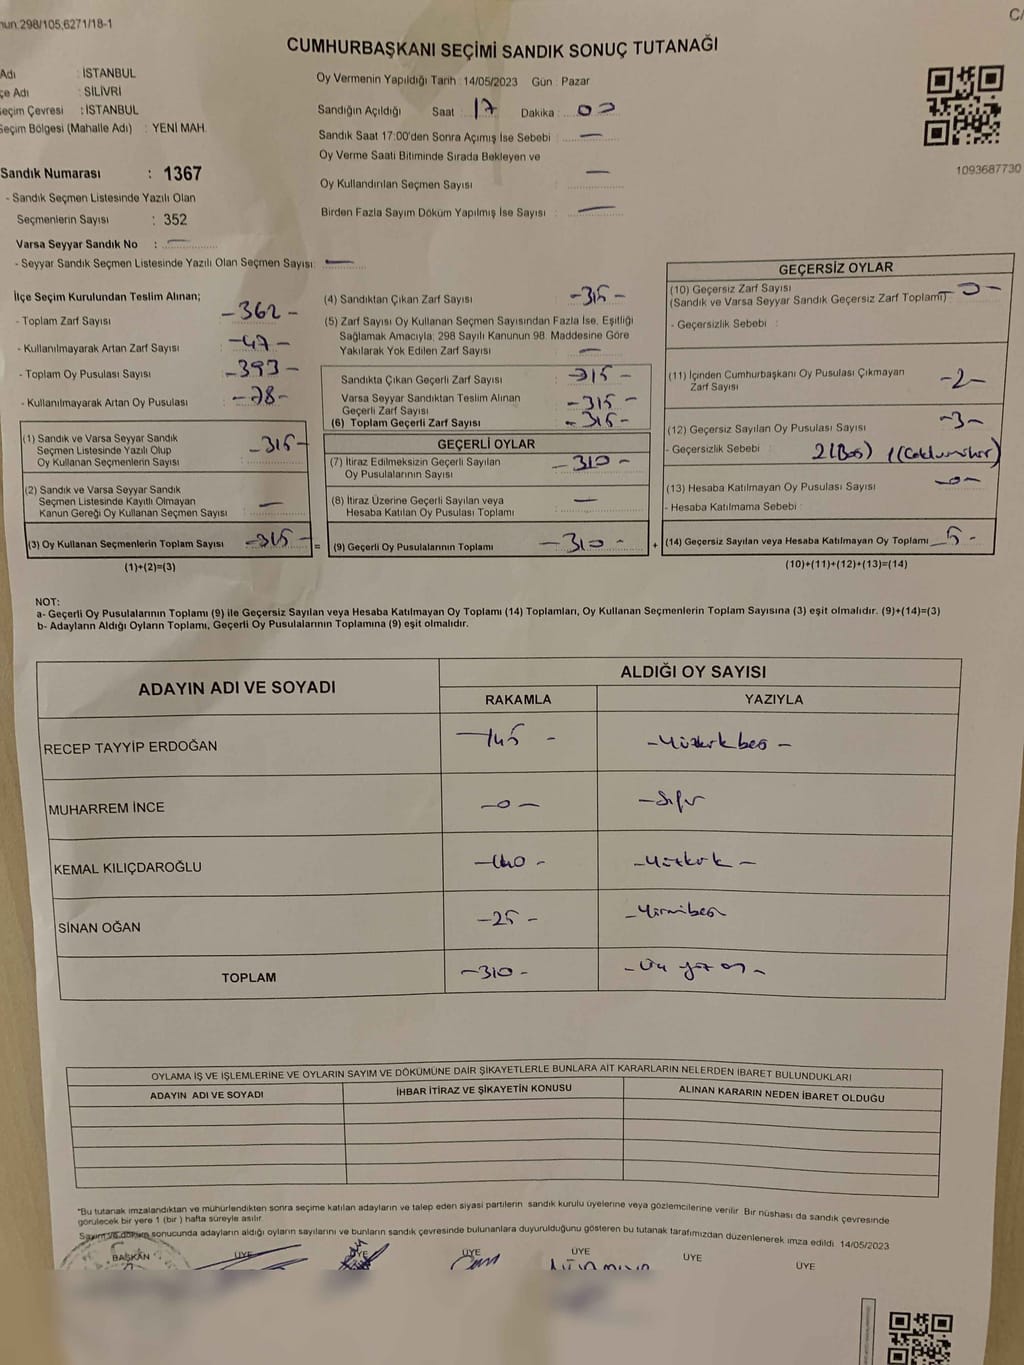 nun:298/105,6271/18-1
C/
CUMHURBAŞKANI SEÇİMİ SANDIK SONUÇ TUTANAĞI
Adı : İSTANBUL
çe Adı : SİLİVRİ
Seçim Çevresi : İSTANBUL
Seçim Bölgesi (Mahalle Adı) : YENİ MAH.
Oy Vermenin Yapıldığı Tarih : 14/05/2023 Gün : Pazar
Sandığın Açıldığı Saat : 17 Dakika : 00
Sandık Saat 17:00'den Sonra Açımış İse Sebebi : —
Oy Verme Saati Bitiminde Sırada Bekleyen ve
Oy Kullandırılan Seçmen Sayısı : —
Birden Fazla Sayım Döküm Yapılmış İse Sayısı : —
1093687730
Sandık Numarası : 1367
- Sandık Seçmen Listesinde Yazılı Olan
Seçmenlerin Sayısı : 352
Varsa Seyyar Sandık No : —
- Seyyar Sandık Seçmen Listesinde Yazılı Olan Seçmen Sayısı: —
İlçe Seçim Kurulundan Teslim Alınan;
- Toplam Zarf Sayısı -362-
- Kullanılmayarak Artan Zarf Sayısı -47-
- Toplam Oy Pusulası Sayısı -393-
- Kullanılmayarak Artan Oy Pusulası -78-
(1) Sandık ve Varsa Seyyar Sandık
Seçmen Listesinde Yazılı Olup
Oy Kullanan Seçmenlerin Sayısı -315-
(2) Sandık ve Varsa Seyyar Sandık
Seçmen Listesinde Kayıtlı Olmayan
Kanun Gereği Oy Kullanan Seçmen Sayısı —
(3) Oy Kullanan Seçmenlerin Toplam Sayısı -315- =
(1)+(2)=(3)
(4) Sandıktan Çıkan Zarf Sayısı -315-
(5) Zarf Sayısı Oy Kullanan Seçmen Sayısından Fazla İse, Eşitliği
Sağlamak Amacıyla; 298 Sayılı Kanunun 98. Maddesine Göre
Yakılarak Yok Edilen Zarf Sayısı —
Sandıkta Çıkan Geçerli Zarf Sayısı -315-
Varsa Seyyar Sandıktan Teslim Alınan
Geçerli Zarf Sayısı -315-
(6) Toplam Geçerli Zarf Sayısı -315-
GEÇERLİ OYLAR
(7) İtiraz Edilmeksizin Geçerli Sayılan
Oy Pusulalarının Sayısı -310-
(8) İtiraz Üzerine Geçerli Sayılan veya
Hesaba Katılan Oy Pusulası Toplamı —
(9) Geçerli Oy Pusulalarının Toplamı -310- +
GEÇERSİZ OYLAR
(10) Geçersiz Zarf Sayısı
(Sandık ve Varsa Seyyar Sandık Geçersiz Zarf Toplamı) -0-
- Geçersizlik Sebebi :
(11) İçinden Cumhurbaşkanı Oy Pusulası Çıkmayan
Zarf Sayısı -2-
(12) Geçersiz Sayılan Oy Pusulası Sayısı -3-
- Geçersizlik Sebebi : 2(Boş)
(13) Hesaba Katılmayan Oy Pusulası Sayısı -0-
- Hesaba Katılmama Sebebi :
(14) Geçersiz Sayılan veya Hesaba Katılmayan Oy Toplamı -5-
(10)+(11)+(12)+(13)=(14)
NOT:
a- Geçerli Oy Pusulalarının Toplamı (9) ile Geçersiz Sayılan veya Hesaba Katılmayan Oy Toplamı (14) Toplamları, Oy Kullanan Seçmenlerin Toplam Sayısına (3) eşit olmalıdır. (9)+(14)=(3)
b- Adayların Aldığı Oyların Toplamı, Geçerli Oy Pusulalarının Toplamına (9) eşit olmalıdır.
ADAYIN ADI VE SOYADI
ALDIĞI OY SAYISI
RAKAMLA YAZIYLA
RECEP TAYYİP ERDOĞAN -145- -Yüzkırkbeş-
MUHARREM İNCE -0- -Sıfır
KEMAL KILIÇDAROĞLU -140- -Yüzkırk-
SİNAN OĞAN -25- -Yirmibeş
TOPLAM -310- -Üç yüz on-
OYLAMA İŞ VE İŞLEMLERİNE VE OYLARIN SAYIM VE DÖKÜMÜNE DAİR ŞİKAYETLERLE BUNLARA AİT KARARLARIN NELERDEN İBARET BULUNDUKLARI
ADAYIN ADI VE SOYADI İHBAR İTİRAZ VE ŞİKAYETİN KONUSU ALINAN KARARIN NEDEN İBARET OLDUĞU
"Bu tutanak imzalandıktan ve mühürlendikten sonra seçime katılan adayların ve talep eden siyasi partilerin sandık kurulu üyelerine veya gözlemcilerine verilir. Bir nüshası da sandık çevresinde
görülecek bir yere 1 (bir) hafta süreyle asılır.
Sayım ve döküm sonucunda adayların aldığı oyların sayılarını ve bunların sandık çevresinde bulunanlara duyurulduğunu gösteren bu tutanak tarafımızdan düzenlenerek imza edildi. 14/05/2023
BAŞKAN ÜYE ÜYE ÜYE ÜYE ÜYE ÜYE